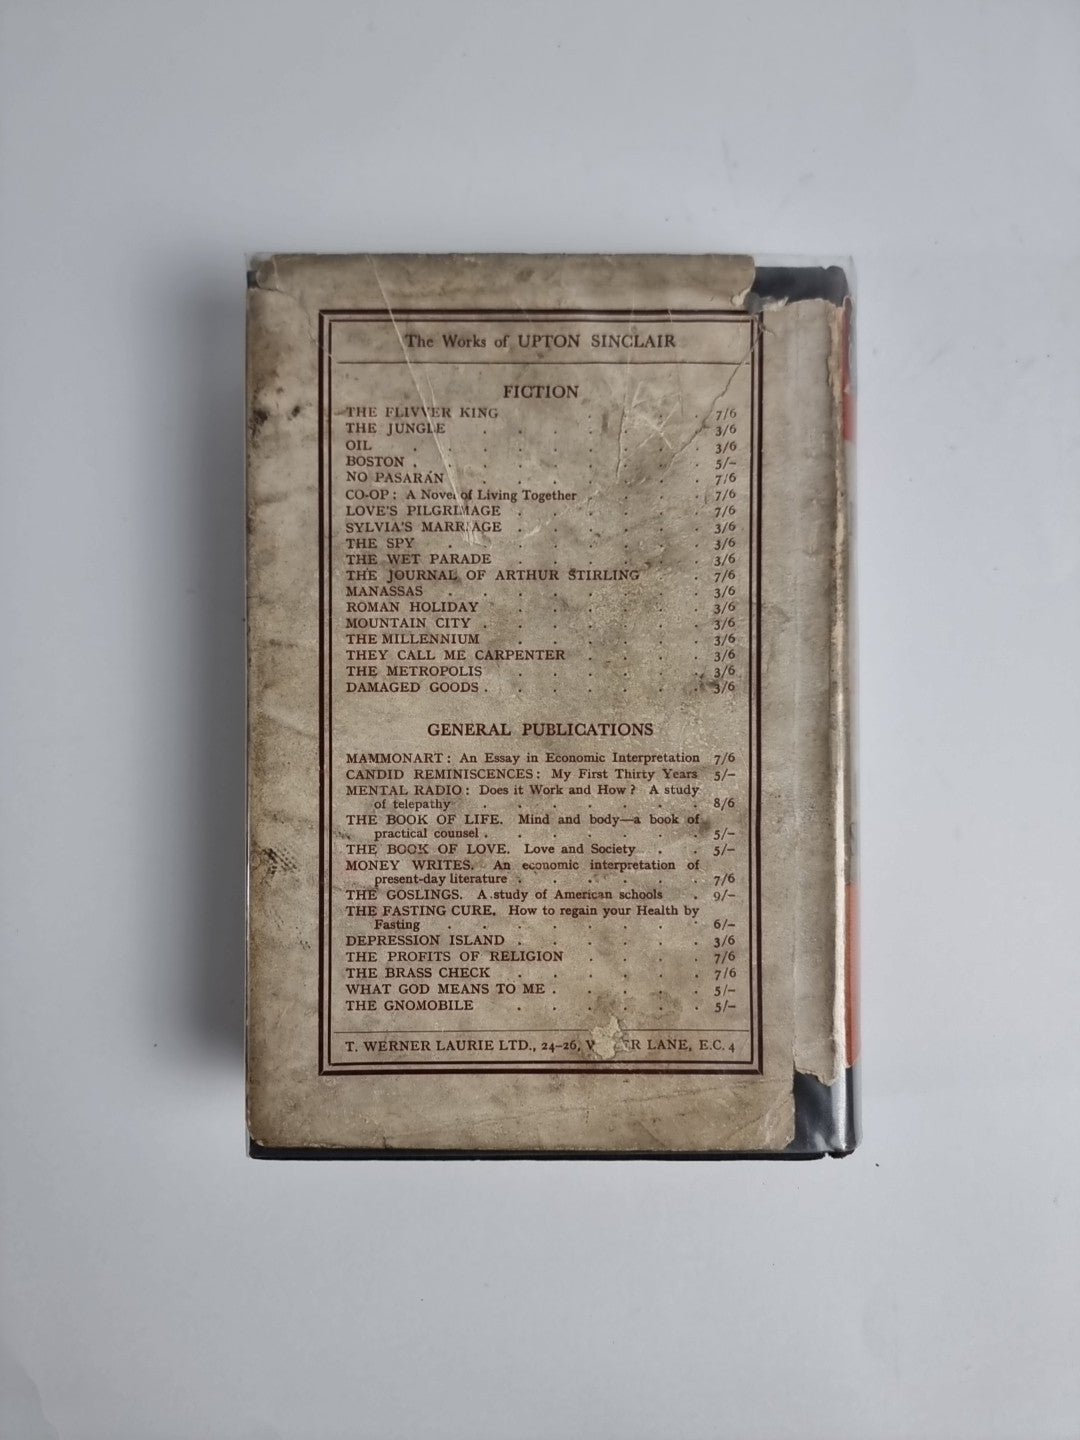 The Works of UPTON SINCLAIR
FICTION
THE FLIVVER KING . . . . 7/6
THE JUNGLE . . . . . . . 3/6
OIL . . . . . . . . 3/6
BOSTON . . . . . . . . . 5/-
NO PASARÁN . . . . . . . 7/6
CO-OP: A Novel of Living Together . . . . 7/6
LOVE'S PILGRIMAGE . . . . . . 7/6
SYLVIA'S MARRIAGE . . . . . . 3/6
THE SPY . . . . . . . . 3/6
THE WET PARADE . . . . . . 3/6
THE JOURNAL OF ARTHUR STIRLING . 7/6
MANASSAS . . . . . . . . 3/6
ROMAN HOLIDAY . . . . . . 3/6
MOUNTAIN CITY . . . . . . . 3/6
THE MILLENNIUM . . . . . . 3/6
THEY CALL ME CARPENTER . . . . 3/6
THE METROPOLIS . . . . . . 3/6
DAMAGED GOODS . . . . . . . 3/6
GENERAL PUBLICATIONS
MAMMONART: An Essay in Economic Interpretation 7/6
CANDID REMINISCENCES: My First Thirty Years 5/-
MENTAL RADIO: Does it Work and How? A study
of telepathy . . . . . . . 8/6
THE BOOK OF LIFE. Mind and body—a book of
practical counsel . . . . . . . 5/-
THE BOOK OF LOVE. Love and Society . . 5/-
MONEY WRITES. An economic interpretation of
present-day literature . . . . . . 7/6
THE GOSLINGS. A study of American schools . 9/-
THE FASTING CURE. How to regain your Health by
Fasting . . . . . . . . 6/-
DEPRESSION ISLAND . . . . . . 3/6
THE PROFITS OF RELIGION . . . . 7/6
THE BRASS CHECK . . . . . . 7/6
WHAT GOD MEANS TO ME . . . . . 5/-
THE GNOMOBILE . . . . . . 5/-
T. WERNER LAURIE LTD., 24-26, LANE, E.C. 4